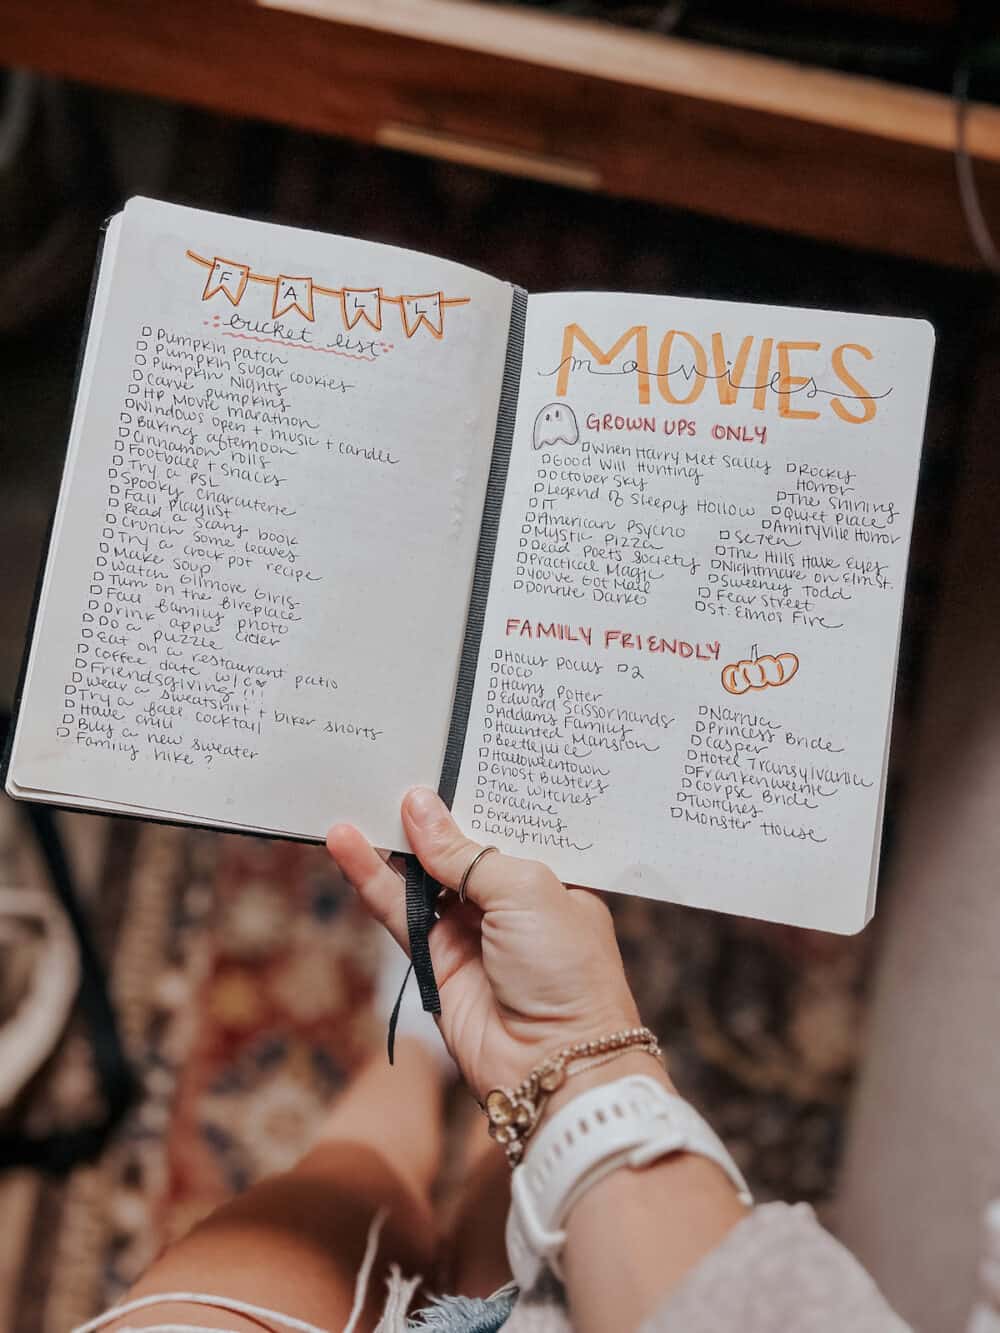 FALL
bucket list
☐ Pumpkin patch
☐ Pumpkin sugar cookies
☐ Pumpkin Nights
☐ carve pumpkins
☐ HP Movie marathon
☐ Windows open + music + candle
☐ Baking afternoon
☐ Cinnamon rolls
☐ Football + snacks
☐ Try a PSL
☐ Spooky charcuterie
☐ Fall playlist
☐ Read a scary book
☐ Crunch some leaves
☐ Try a crock pot recipe
☐ Make soup
☐ Watch Gilmore Girls
☐ Turn on the fireplace
☐ Fall family photo
☐ Drink apple cider
☐ Do a puzzle
☐ Eat on a restaurant patio
☐ Coffee date w/ C ♥
☐ Friendsgiving!!!
☐ Wear a sweatshirt + biker shorts
☐ Try a fall cocktail
☐ Have chili
☐ Buy a new sweater
☐ Family hike?
MOVIES
movies
GROWN UPS ONLY
☐ When Harry Met Sally
☐ Good Will Hunting
☐ October Sky
☐ Legend of Sleepy Hollow
☐ IT
☐ American Psycho
☐ Mystic Pizza
☐ Dead Poets Society
☐ Practical Magic
☐ You've Got Mail
☐ Donnie Darko
☐ Rocky
Horror
☐ The Shining
☐ Quiet Place
☐ Amityville Horror
☐ Se7en
☐ The Hills Have Eyes
☐ Nightmare on Elm St.
☐ Sweeney Todd
☐ Fear Street
☐ St. Elmos Fire
FAMILY FRIENDLY
☐ Hocus Pocus ☐ 2
☐ Coco
☐ Harry Potter
☐ Edward Scissorhands
☐ Addams Family
☐ Haunted Mansion
☐ Beetlejuice
☐ Halloweentown
☐ Ghost Busters
☐ The Witches
☐ Coraline
☐ Gremlins
☐ Labyrinth
☐ Narnia
☐ Princess Bride
☐ Casper
☐ Hotel Transylvania
☐ Frankenweenie
☐ Corpse Bride
☐ Twitches
☐ Monster House